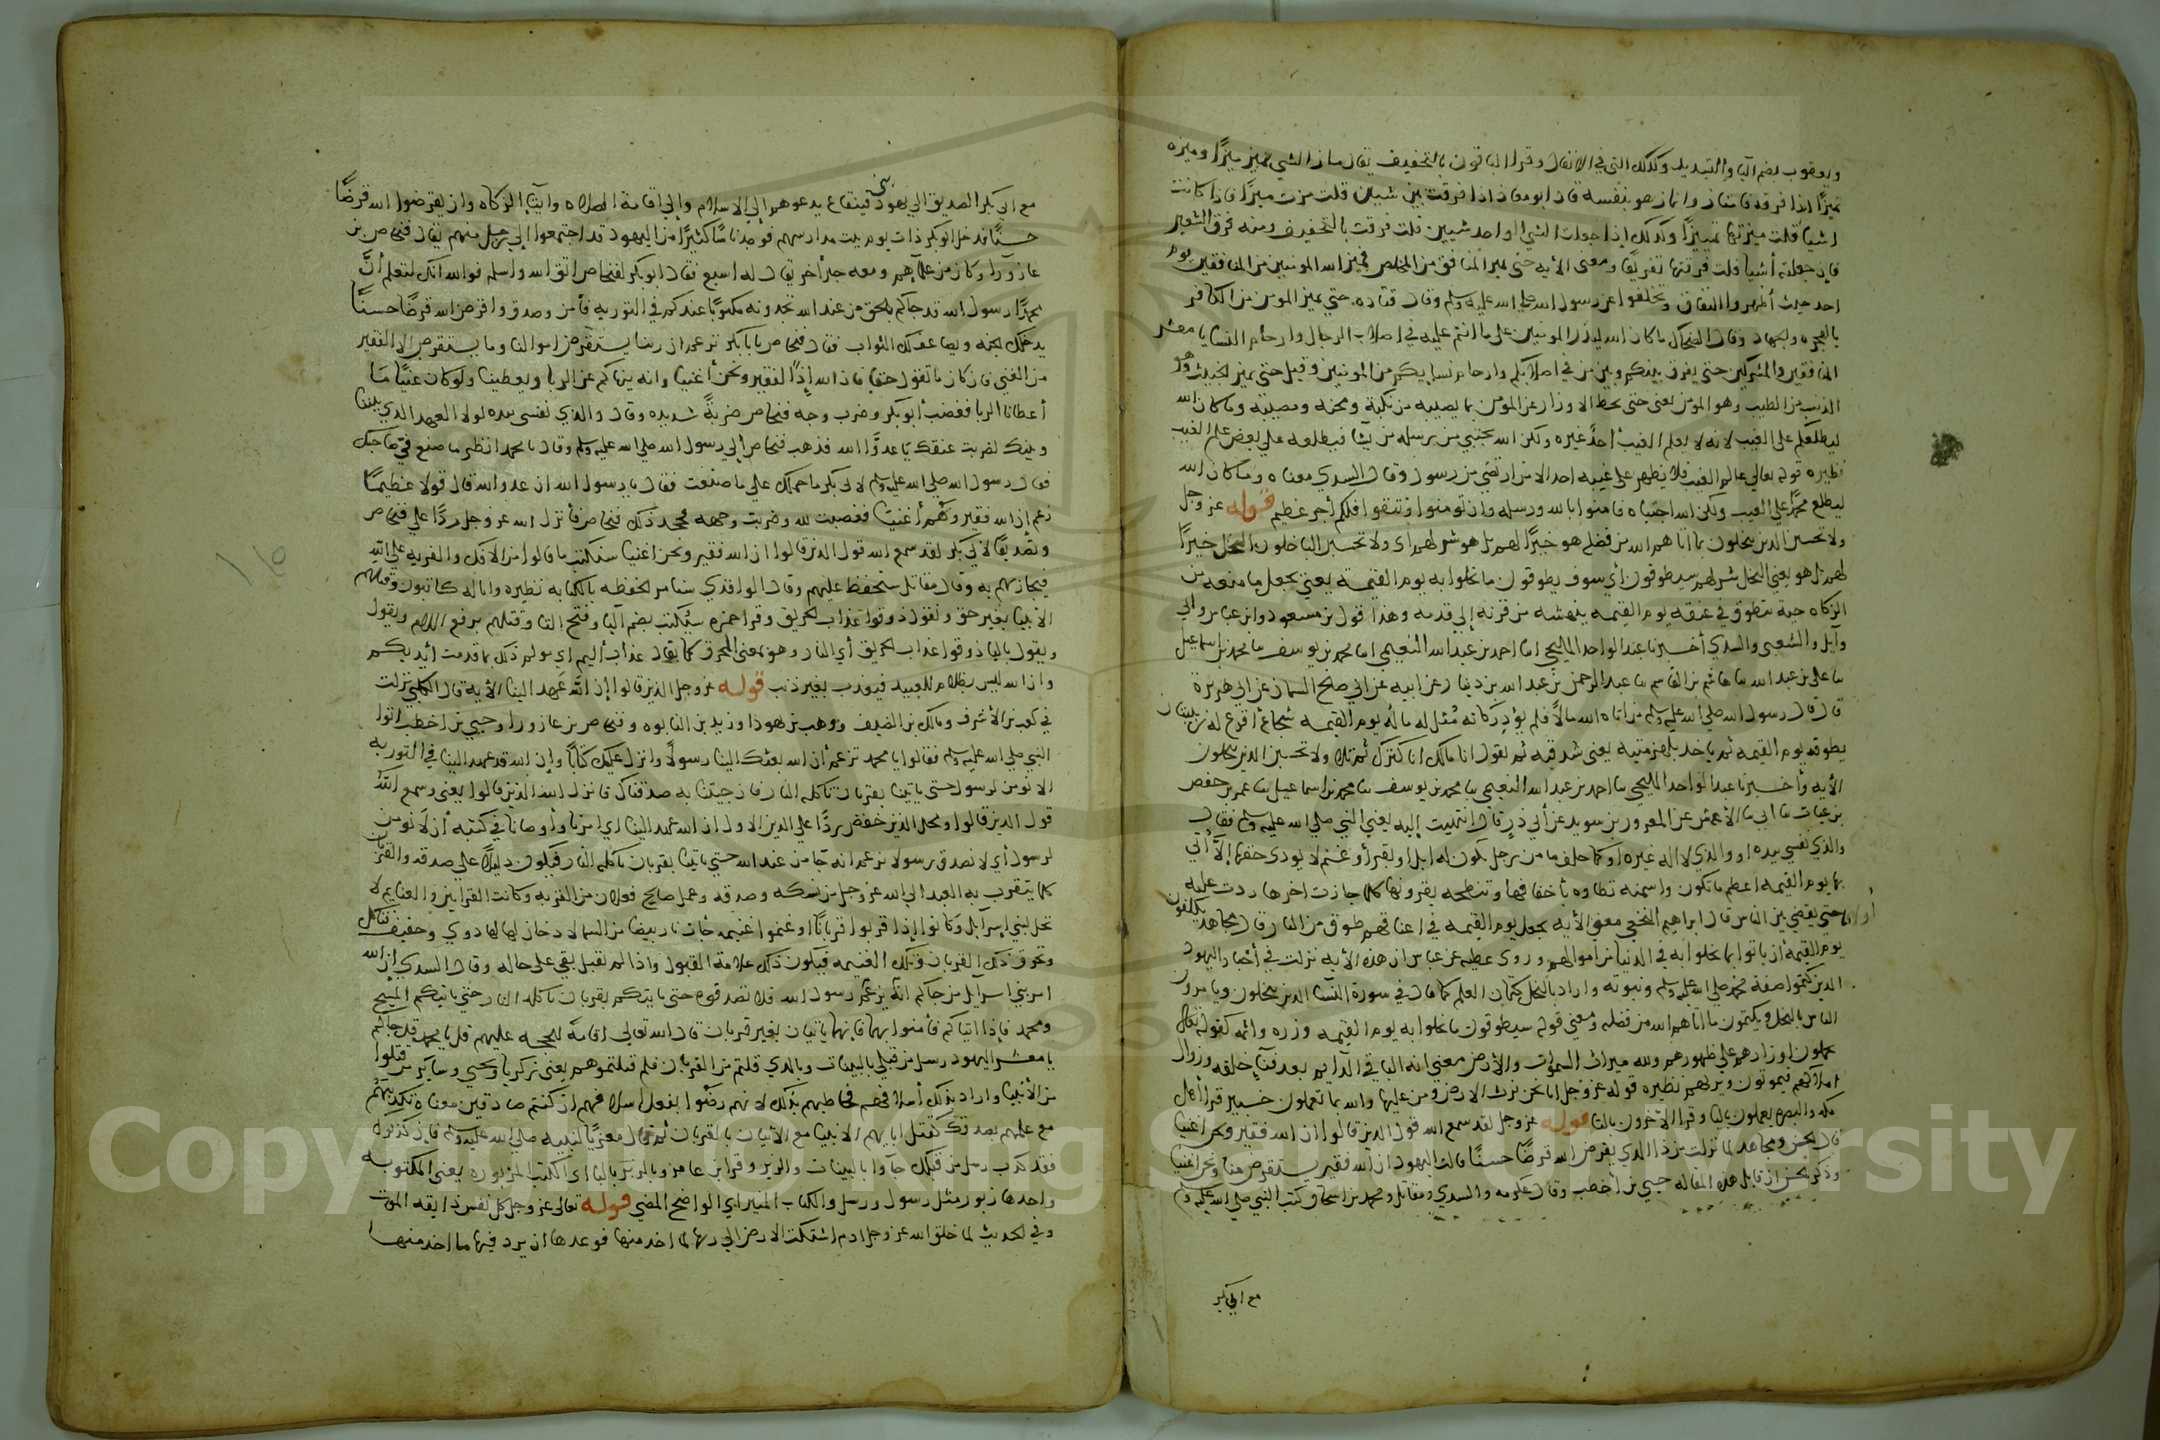 ويعقوب بضم اليا والتشديد وكذلك التي في الانفال وقرا الباقون بالتخفيف يقال ماز الشي يميز ميزًا وميزه
تميزًا اذا فرقه فامتاز وانماز هو بنفسه قال ابو معاذ اذا فرقت بين شيين قلت مزت ميزًا فاذا كانت
اشيا قلت ميزتها تمييزًا وكذلك اذا جعلت الشي الواحد شيين قلت فرقت بالتخفيف ومنه فرق الشعر
فان جعلته أشيا قلت فرقتها تفريقًا ومعنى الأيه حتى يميز المنافق من المخلص فميز الله المومنين من المنافقين يوم
احد حيث أظهروا النفاق وتخلفوا عن رسول الله صلى الله عليه وسلم وقال قتاده حتي يميز المومن من الكافر
بالهجره والجهاد وقال الضحاك ما كان الله ليذر المومنين على ما انتم عليه في اصلاب الرجال وارحام النسا يا معشر
المنافقين والمشركين حتى يفرق بينكم وبين من في اصلابكم وارحام نسايكم من المومنين وقيل حتى يميز الخبيث وهو
الذنب من الطيب وهو المومن يعنى حتى يحط الاوزار عن المومن بما يصيبه من نكبة ومحنه ومصيبة وما كان الله
ليطلعكم على الغيب لانه لا يعلم الغيب أحدٌ غيره ولكن الله يجتبي من رسله من يشا فيطلعه على بعض علم الغيب
نظيره قوله تعالى عالم الغيب فلا يظهر على غيبه احد الا من ارتضى من رسول وقال السدي معناه وما كان الله
ليطلع محمدًا على الغيب ولكن الله اجتباه فامنوا بالله ورسله وان تومنوا وتتقوا فلكم أجر عظيم قوله عز وجل
ولا تحسبن الذين يبخلون بما اتاهم الله من فضله هو خيرًا لهم بل هو شر لهم اي ولا تحسبن الباخلون البخل خيرًا
لهم بل هو يعنى البخل شر لهم سيطوقون أي سوف يطوقون ما بخلوا به يوم القيمة يعني يجعل ما منعه من
الزكاه حية تطوق في عنقه يوم القيمه ينهشه من قرنه إلى قدمه وهذا قول بن مسعود وابن عباس وابي
وآيل والشعبي والسدي أخبرنا عبد الواحد المليحي انا احمد بن عبد الله النعيمي انا محمد بن يوسف نا محمد بن اسماعيل
نا على بن عبد الله نا هاشم بن القاسم نا عبد الرحمن بن عبد الله بن دينار عن ابيه عن ابي صلح السمان عن ابي هريرة
قال قال رسول الله صلى الله عليه وسلم من اتاه الله مالًا فلم يؤد زكاته مُثل له مالُه يوم القيمه شجاعًا أقرع له زبيبتان
يطوقه يوم القيمه ثم ياخذ بلهزمتيه يعنى شدقيه ثم يقول انا مالك انا كنزك ثم تلا ولا تحسبن الذين يبخلون
الأيه وأخبرنا عبد الواحد المليحي نا احمد بن عبد الله النعيمي نا محمد بن يوسف نا محمد بن اسماعيل نا عمر بن حفص
بن غياث نا ابي نا الأعمش عن المعرور بن سويد عن أبي ذرٍ قال انتهيت إليه يعني النبي صلى الله عليه وسلم فقال
والذي نفسي بيده او والذي لا اله غيره او كما حلف ما من رجل تكون له ابل او بقر أو غنم لا يودى حقها إلّا أُتي
بها يوم القيمه اعظم ما تكون واسمنه تطاوه بأخفافها وتنطحه بقرونها كلما جازت اخرها ردت عليه
أولاها حتى يقضى بين الناس قال ابراهيم النخعي معنى الأيه يجعل يوم القيمه في اعناقهم طوق من النار قال مجاهد يكلفون
يوم القيمة أن ياتوا بما بخلوا به في الدنيا من اموالهم وروى عطيه عن عباس ان هذه الأيه نزلت في أحبار اليهود
الذين كتموا صفة محمد صلى الله عليه وسلم ونبوته واراد بالبخل كتمان العلم كما قال في سورة النسآ الذين يبخلون ويامرون
الناس بالبخل ويكتمون ما اتاهم الله من فضله ومعنى قوله سيطوقون ما بخلوا به يوم القيمه وزره واثمه كقوله تعالى
يحملون اوزارهم على ظهورهم ولله ميراث السموات والأرض معني انه الباقي الدآيم بعد فنآ خلقه وزوال
املاكهم فيموتون ويرثهم نظيره قوله عز وجل إنا نحن نرث الارض ومن عليها والله بما تعملون خبير قرا أهل
مكه والبصره يعملون باليا وقرا الآخرون بالتا قوله عز وجل لقد سمع الله قول الذين قالوا ان الله فقير ونحن اغنيا
قال الحسن ومجاهد لما نزلت من ذا الذي يقرض الله قرضًا حسنًا قالت اليهود ان الله فقير يستقرض منا ونحن اغنيا
وذكر الحسن ان قايل هذه المقاله حيي بن أخطب وقال عكرمه والسدي ومقاتل ومحمد بن اسحاق كتب النبي صلى الله عليه وسلم
مع ابي بكر
مع ابي بكر الصديق الى يهود بني قينقاع يدعوهم إلى الاسلام وإلى اقامة الصلاه وايتآ الزكاه وان يقرضوا الله قرضًا
حسنًا فدخل ابو بكر ذات يوم بيت مدراسهم فوجد ناسًا كثيرًا من اليهود قد اجتمعوا إلى رجل منهم يقال فنحاص بن
عازورا وكان من علمآهم ومعه حبر آخر يقال له اسيع فقال ابو بكر لفنحاص اتق الله واسلم فوالله انك لتعلم أنَّ
محمدًا رسول الله قد جاكم بالحق من عند الله تجدونه مكتوبًا عندكم في التوريه فأمن وصدق واقرض الله قرضًا حسنًا
يدخلك الجنه ويضاعف لك الثواب فقال فنحاص يا ابا بكر تزعم ان ربنا يستقرض اموالنا وما يستقرض الا الفقير
من الغني فان كان ما تقول حقا فان الله إذًا لفقير ونحن أغنيا وانه ينهاكم عن الربا ويعطينا ولو كان غنيًا مَا
أعطانا الربا فغضب أبو بكر وضرب وجه فنحاص ضربةً شديده وقال والذي نفسى بيده لولا العهد الذي بيننا
وبينك لضربت عنقك يا عدوَّ الله فذهب فنحاص إلى رسول الله صلى الله عليه وسلم وقال يا محمد انظر ما صنع بي صاحبك
فقال رسول الله صلى الله عليه وسلم لابي بكر ما حملك على ما صنعت فقال يا رسول الله ان عدو الله قال قولا عظيمًا
زعم إن الله فقير وهُم أغنيآ فغضبت لله وضربت وجهه فجحد ذلك فنحاص فأنزل الله عز وجل ردًا على فنحاص
وتصديقًا لابي بكر لقد سمع الله قول الذين قالوا ان الله فقير ونحن اغنيا سنكتب ما قالوا من الافك والفريه على الله
فيجازيهم به وقال مقاتل سنحفظ عليهم وقال الواقدي سنامر الحفظه بالكتابه نظيره وانا له كاتبون وقتلهم
الانبيا بغير حق ونقول ذوقوا عذاب الحريق وقرا حمزه سيُكتب بضم اليا وفتح التا وقتلهم برفع اللام ويقول
ويقول باليا ذوقوا عذاب الحريق أي النار وهو بمعنى المحرق كما يقال عذاب أليم اي مولم ذلك بما قدمت أيديكم
وان الله ليس بظلام للعبيد فيعذب بغير ذنب قوله عز وجل الذين قالوا إن الله عَهد الينا الأية قال الكلبي نزلت
في كعب بن الأشرف ومالك بن الضيف ووهب بن يهوذا وزيد بن التابوه وفنحاص بن عازورا وحيي بن اخطب اتوا
النبي صلى الله عليه وسلم فقالوا يا محمد تزعم أن الله بعثك الينا رسولًا وانزل عليك كتابًا وإن الله قد عهد الينا في التوريه
الا نومن لرسول حتى ياتينا بقربان تاكله النار فان جيتنا به صدقناك فانزل الله الذين قالوا يعنى وسمع الله
قول الذين قالوا ومحل الذين خفض ردًا على الذين الاول ان الله عهد الينا اي امرنا وأوصانا في كتبه أن لا نومن
لرسول أي لا نصدق رسولا يزعم انه جآ من عند الله حتى ياتينا بقربان تاكله النار فيكون دليلًا على صدقه والقربان
كلما يتقرب به العبد الى الله عز وجل من نسكه وصدقه وعمل صالح فعلان من القربه وكانت القرابين والغنايم لا
تحل لبني إسرآيل وكانوا إذا قربوا قربانًا او غنموا غنيمه جآت نار بيضا من السما لا دخان لها لها دوي وحفيف فتاكل
وتحرق ذلك القربان وتلك الغنيمه فيكون ذلك علامة القبول واذا لم تقبل بقى على حاله وقال السدي إن الله
امر بني اسرآيل من جاكم انه يزعم رسول الله فلا تصدقوه حتى ياتيكم بقربان تاكله النار حتى ياتيكم المسيح
ومحمد فإذا اتياكم فأمنوا بهما فإنهما ياتيان بغير قربان قال الله تعالى اقامة للحجه عليهم قل يا محمد قد جآكم
يا معشر اليهود رسل من قبلي بالبينات وبالذي قلتم من القربان فلم قتلتموهم يعنى زكريا ويحيى وساير من قتلوا
من الأنبيا واراد بذلك أسلافهم فخاطبهم بذلك لانهم رضُوا بفعل اسلافهم ان كنتم صادقين معناه تكذيبهم
مع علمهم بصدقك كقتل ابايهم الانبيا مع الأتيان بالقربان ثم قال معزيًا لنبيه صلى الله عليه وسلم فان كذبوك
فقد كذب رسل من قبلك جآوا بالبينات والزبر وقرا بن عامر وبالزبر باليا اي الكتب المزبوره يعنى المكتوبه
واحدها زبور مثل رسول ورسل والكتاب المنير اي الواضح المضي قوله تعالى عز وجل كل نفس ذايقه الموت
وفي الحديث لما خلق الله عز وجل ادم اشتكت الارض الي ربها لما اخذ منها فوعدها ان يرد فيها ما اخذ منها
Copyright © King Saud University